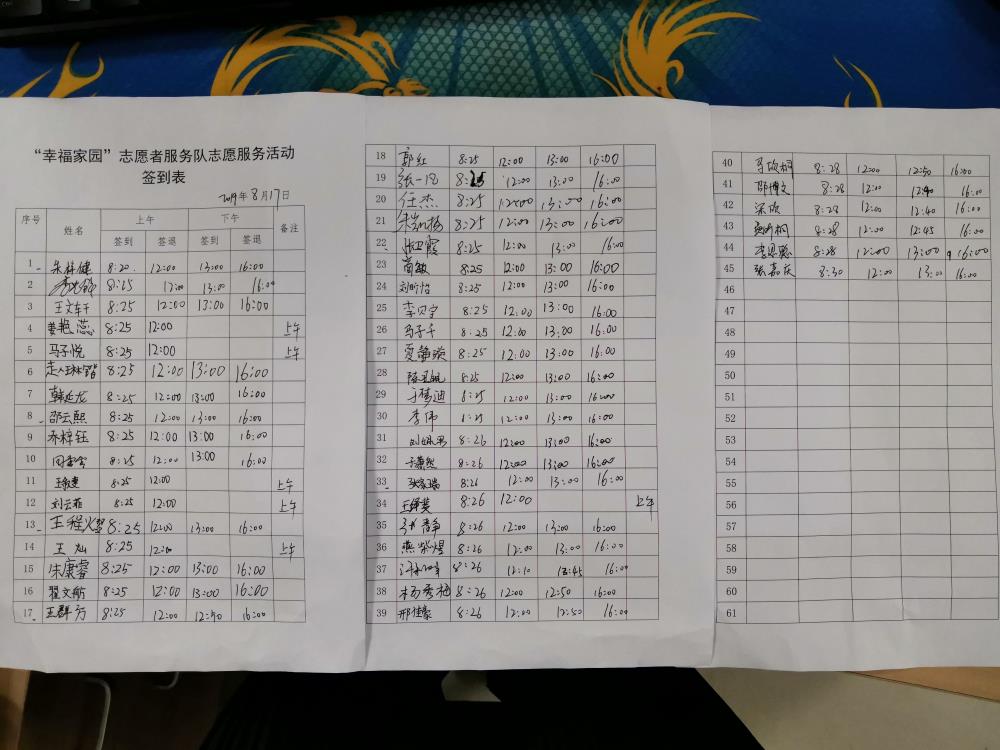 “幸福家园”志愿者服务队志愿服务活动
签到表
2019年8月17日
序号 姓名 上午 下午 备注
签到 签退 签到 签退
1 8:20 12:00 13:00 16:00
2 8:25 12:00 13:00 16:00
3 王文轩 8:25 12:00 13:00 16:00
4 姜艳蕊 8:25 12:00 上午
5 马子悦 8:25 12:00 上午
6 8:25 12:00 13:00 16:00
7 韩延龙 8:25 12:00 13:00 16:00
8 邵云熙 8:25 12:00 13:00 16:00
9 乔梓钰 8:25 12:00 13:00 16:00
10 8:25 12:00 13:00 16:00
11 8:25 12:00 上午
12 刘云菲 8:25 12:00 上午
13 8:25 12:00 13:00 16:00
14 王灿 8:25 12:00 上午
15 朱康睿 8:25 12:00 13:00 16:00
16 翟文舫 8:25 12:00 13:00 16:00
17 王群方 8:25 12:00 12:50 16:00
18 郭红 8:25 12:00 13:00 16:00
19 张一凡 8:25 12:00 13:00 16:00
20 任杰 8:25 12:00 13:00 16:00
21 8:25 12:00 13:00 16:00
22 张卫霞 8:25 12:00 13:00 16:00
23 尚敏 8:25 12:00 13:00 16:00
24 刘昕怡 8:25 12:00 13:00 16:00
25 李贝宁 8:25 12:00 13:00 16:00
26 马子千 8:25 12:00 13:00 16:00
27 夏静璇 8:25 12:00 13:00 16:00
28 8:25 12:00 13:00 16:00
29 于梦迪 8:25 12:00 13:00 16:00
30 李伟 8:25 12:00 13:00 16:00
31 8:26 12:00 13:00 16:00
32 8:26 12:00 13:00 16:00
33 张家瑞 8:26 12:00 13:00 16:00
34 8:26 12:00 上午
35 8:26 12:00 13:00 16:00
36 燕紫煜 8:26 12:00 13:00 16:00
37 8:26 12:10 12:45 16:00
38 杨秀梅 8:26 12:00 12:50 16:00
39 邢佳豪 8:26 12:00 12:50 16:00
40 马欣桐 8:28 12:00 12:50 16:00
41 邵博文 8:28 12:00 12:40 16:00
42 梁欣 8:28 12:00 12:40 16:00
43 8:28 12:00 12:45 16:00
44 李恩聪 8:28 12:00 13:00 16:00
45 张嘉庆 8:30 12:00 13:00 16:00
46
47
48
49
50
51
52
53
54
55
56
57
58
59
60
61